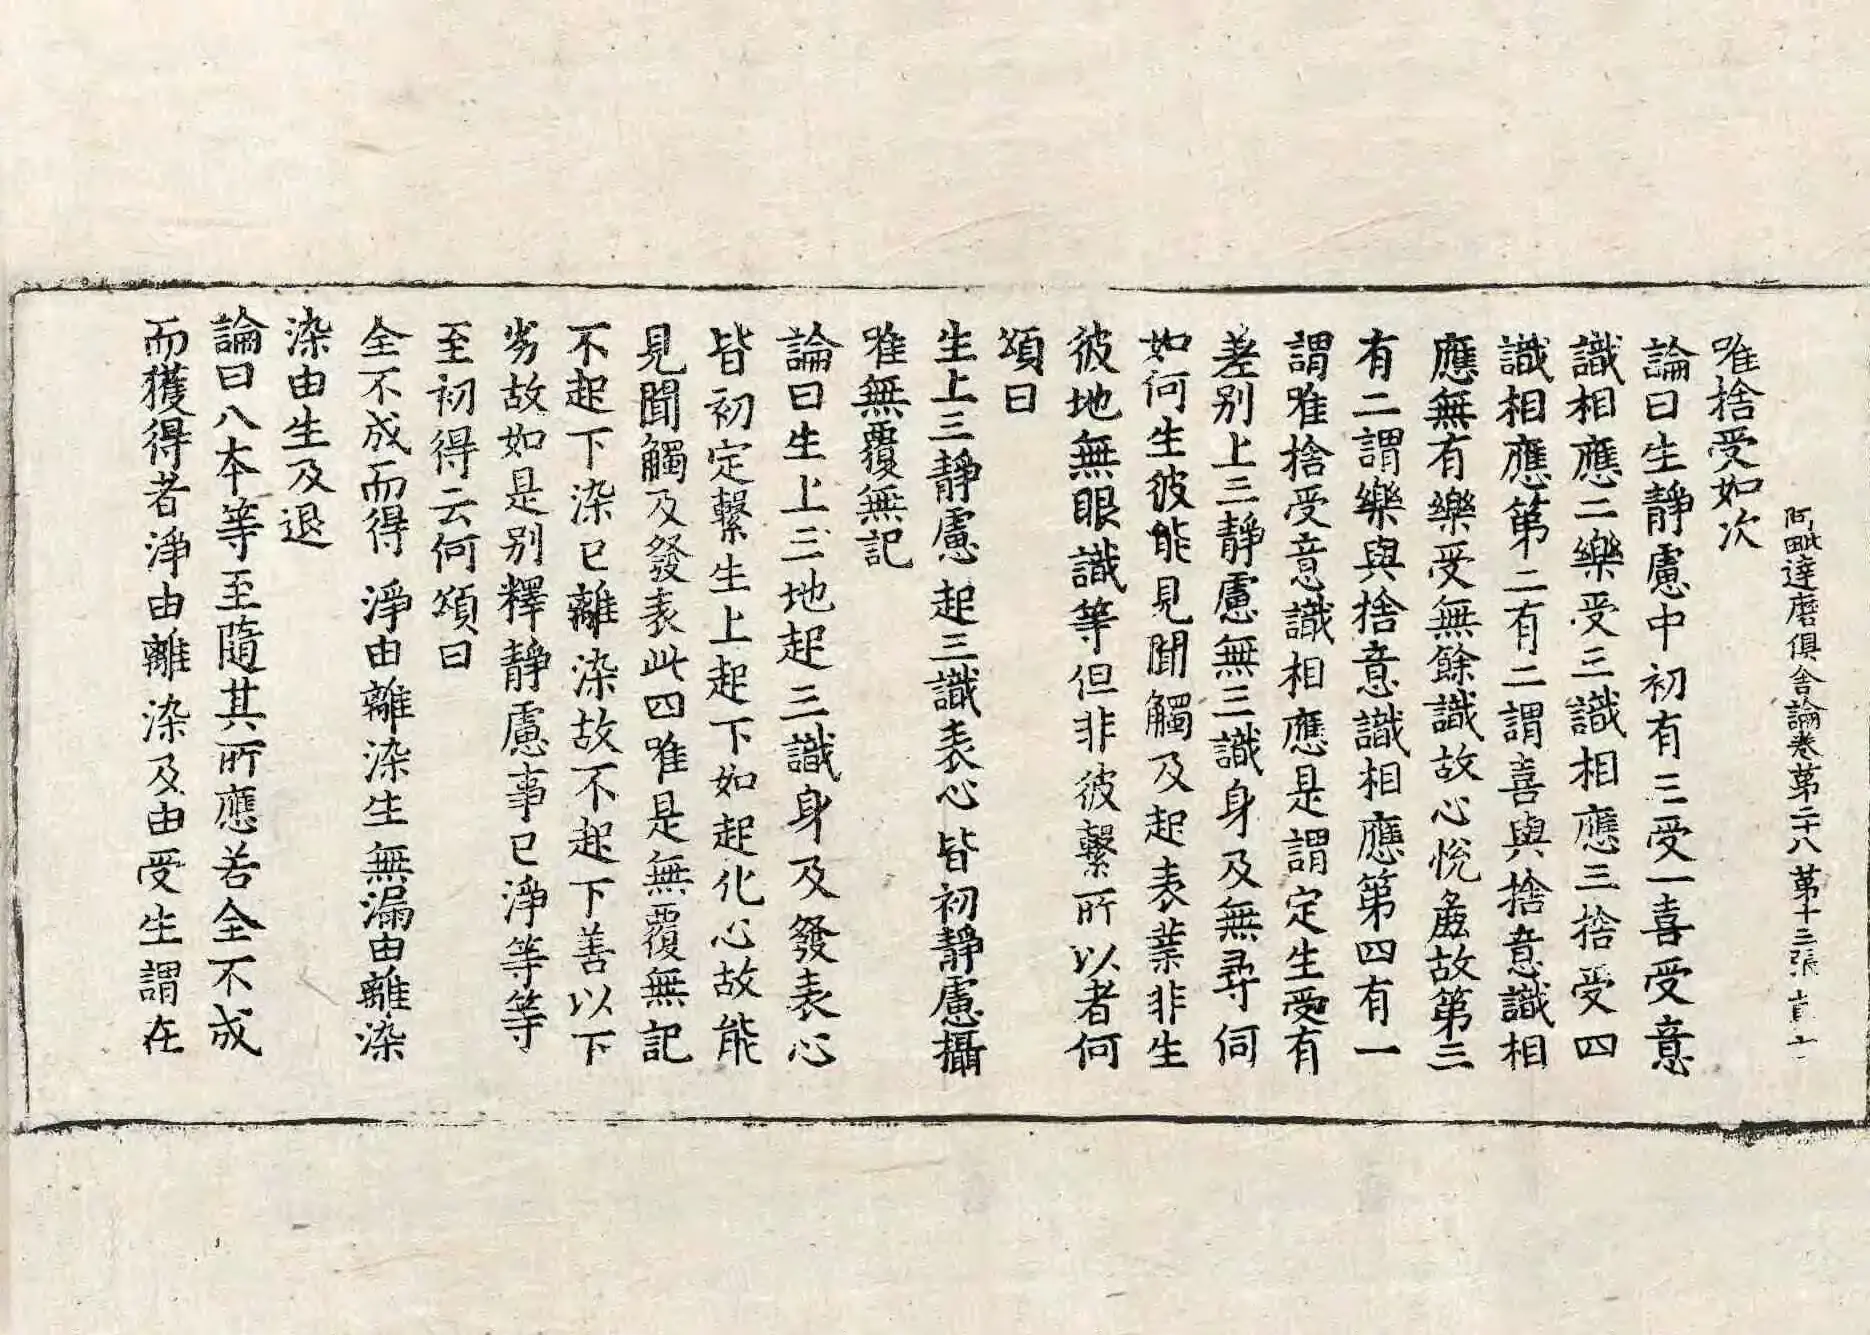 阿毗達磨俱舍論卷第二十八 第十三張
唯捨受如次
論曰生靜慮中初有三受一喜受意
識相應二樂受三識相應三捨受四
識相應第二有二謂喜與捨意識相
應無有樂受無餘識故心悅麁故第三
有二謂樂與捨意識相應第四有一
謂唯捨受意識相應是謂定生受有
差別上三靜慮無三識身及無尋伺
如何生彼能見聞觸及起表業非生
彼地無眼識等但非彼繫所以者何
頌曰
生上三靜慮 起三識表心 皆初靜慮攝
唯無覆無記
論曰生上三地起三識身及發表心
皆初定繫生上起下如起化心故能
見聞觸及發表此四唯是無覆無記
不起下染已離染故不起下善以下
劣故如是別釋靜慮事已淨等等
至初得云何頌曰
全不成而得 淨由離染生 無漏由離染
染由生及退
論曰八本等至隨其所應若全不成
而獲得者淨由離染及由受生謂在